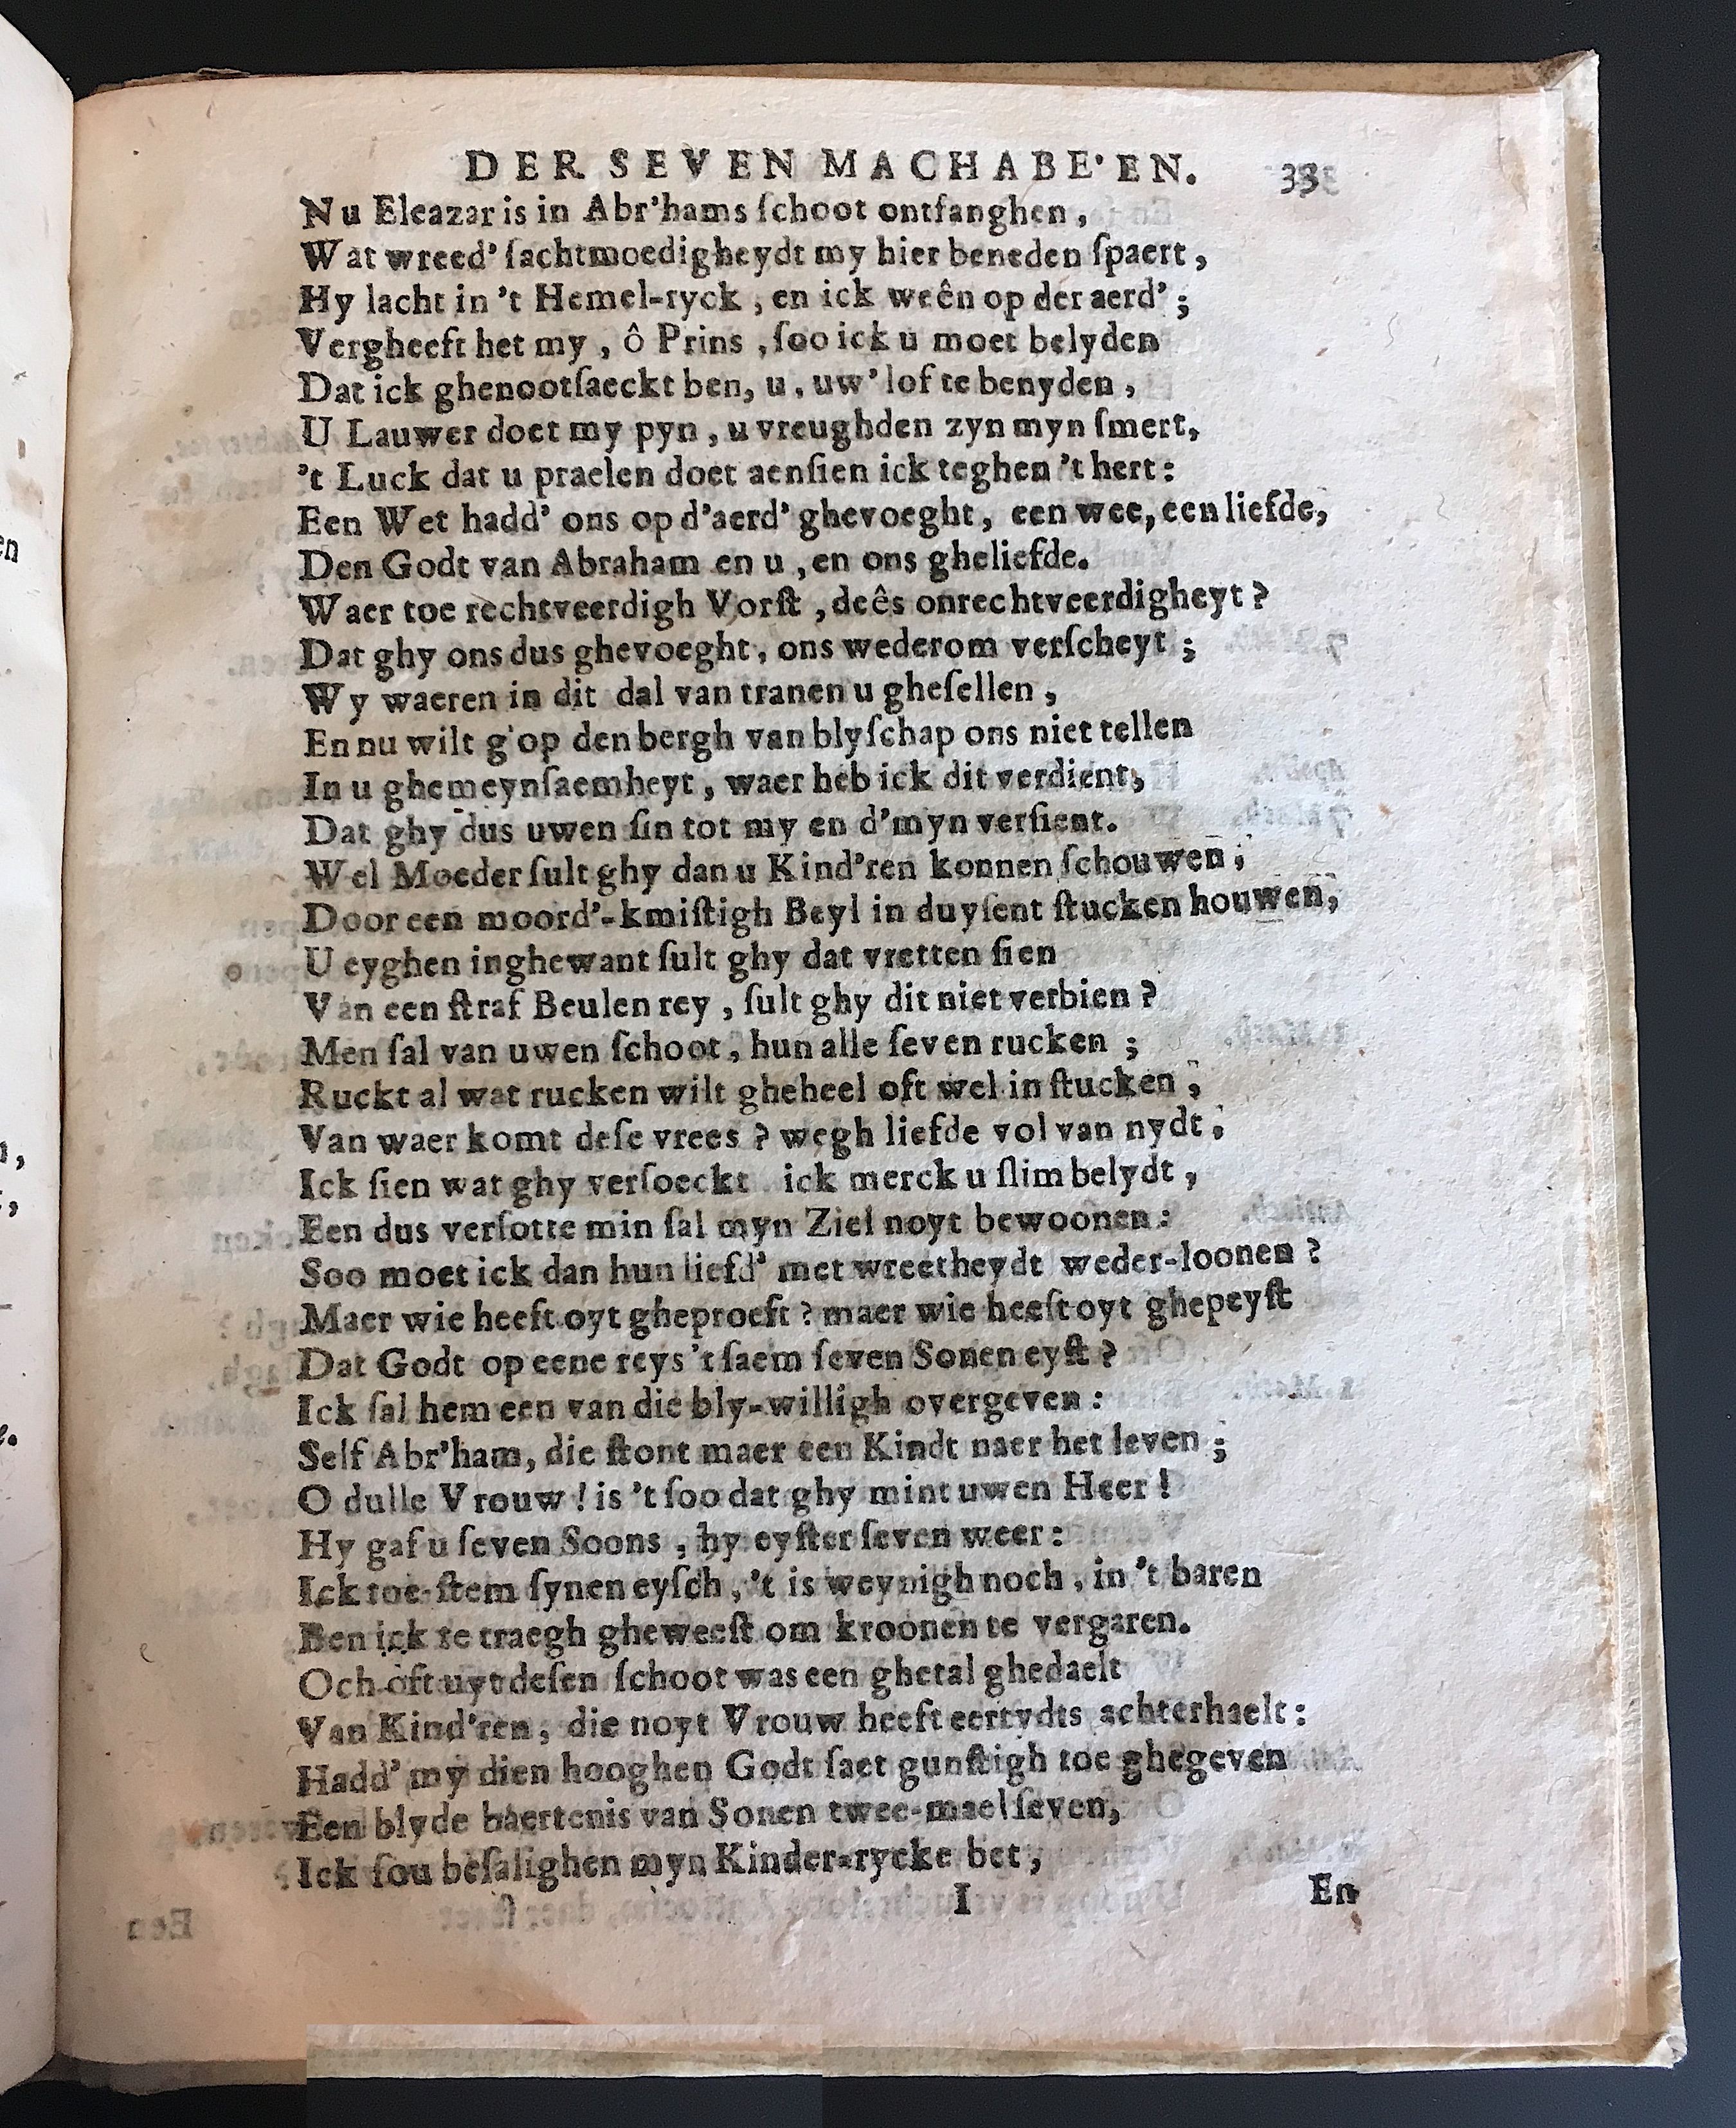 DER SEVEN MACHABE'EN. 33
Nu Eleazar is in Abr'hams ſchoot ontfanghen,
Wat wreed' ſachtmoedigheydt my hier beneden ſpaert,
Hy lacht in 't Hemel-ryck, en ick weên op der aerd';
Vergheeft het my, ô Prins, ſoo ick u moet belyden
Dat ick ghenootſaeckt ben, u, uw' lof te benyden,
U Lauwer doet my pyn, u vreughden zyn myn ſmert,
't Luck dat u praelen doet aenſien ick teghen 't hert:
Een Wet hadd' ons op d'aerd' ghevoeght, een wee, een liefde,
Den Godt van Abraham en u, en ons gheliefde.
Waer toe rechtveerdigh Vorſt, deês onrechtveerdigheyt?
Dat ghy ons dus ghevoeght, ons wederom verſcheyt;
Wy waeren in dit dal van tranen u gheſellen,
En nu wilt g'op den bergh van blyſchap ons niet tellen
In u ghemeynſaemheyt, waer heb ick dit verdient,
Dat ghy dus uwen ſin tot my en d'myn verſient.
Wel Moeder ſult ghy dan u Kind'ren konnen ſchouwen,
Door een moord'-kmiſtigh Beyl in duyſent ſtucken houwen,
U eyghen inghewant ſult ghy dat vretten ſien
Van een ſtraf Beulen rey, ſult ghy dit niet verbien?
Men ſal van uwen ſchoot, hun alle ſeven rucken;
Ruckt al wat rucken wilt gheheel oft wel in ſtucken,
Van waer komt deſe vrees? wegh liefde vol van nydt,
Ick ſien wat ghy verſoeckt ick merck u ſlim belydt,
Een dus verſotte min ſal myn Ziel noyt bewoonen:
Soo moet ick dan hun liefd' met wreetheydt weder-loonen?
Maer wie heeft oyt gheproeft? maer wie heeft oyt ghepeyſt
Dat Godt op eene reys 't ſaem ſeven Sonen eyſt?
Ick ſal hem een van die bly-willigh overgeven:
Self Abr'ham, die ſtont maer een Kindt naer het leven;
O dulle Vrouw! is 't ſoo dat ghy mint uwen Heer!
Hy gaf u ſeven Soons, hy eyſter ſeven weer:
Ick toe-ſtem ſynen eyſch, 't is weynigh noch, in 't baren
Ben ick te traegh gheweeſt om kroonen te vergaren.
Och oft uyt deſen ſchoot was een ghetal ghedaelt
Van Kind'ren, die noyt Vrouw heeft eertydts achterhaelt:
Hadd' my dien hooghen Godt ſaet gunſtigh toe ghegeven
Een blyde baertenis van Sonen twee-mael ſeven,
Ick ſou beſalighen myn Kinder-rycke bet,
I En